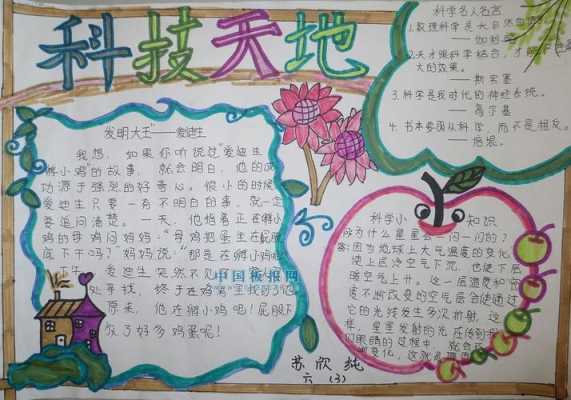 科技天地
发明大王"——爱迪生
我想,如果你听说过"爱迪生
孵小鸡"的故事,就会明白,他的成
功源于强烈的好奇心。很小的时候
爱迪生只要一有不明白的事,就一定
要追问清楚。一天,他指着正在孵小
鸡的母鸡问妈妈:"母鸡把蛋坐在屁股
底下干吗?"妈妈说:"那是在孵小鸡呢
爱迪生突然不见
处寻找,终于在鸡窝里找到了他
原来,他在孵小鸡呢!屁股下
放了好多鸡蛋呢!
中国板报网
科学名人名言
1.数理科学是大自然
——伽利略
2.天才跟科学结合,才能
大的效果。
——斯宾塞
3.科学是我时代的神经系统。
——高尔基
4.书本要跟从科学,而不是相反。
——培根。
科学小知识
问为什么星星会一闪一闪的?
答:因为地球上大气温度的变化
使上层冷空气下沉,也使下层
暖空气上升。这一层温度和密
度不断改变的空气层会使通过
它的光线发生多次折射,这
样,星星发射的光在传到
们眼睛的过程中,就会
变化,这就
苏欣纯
六(3)